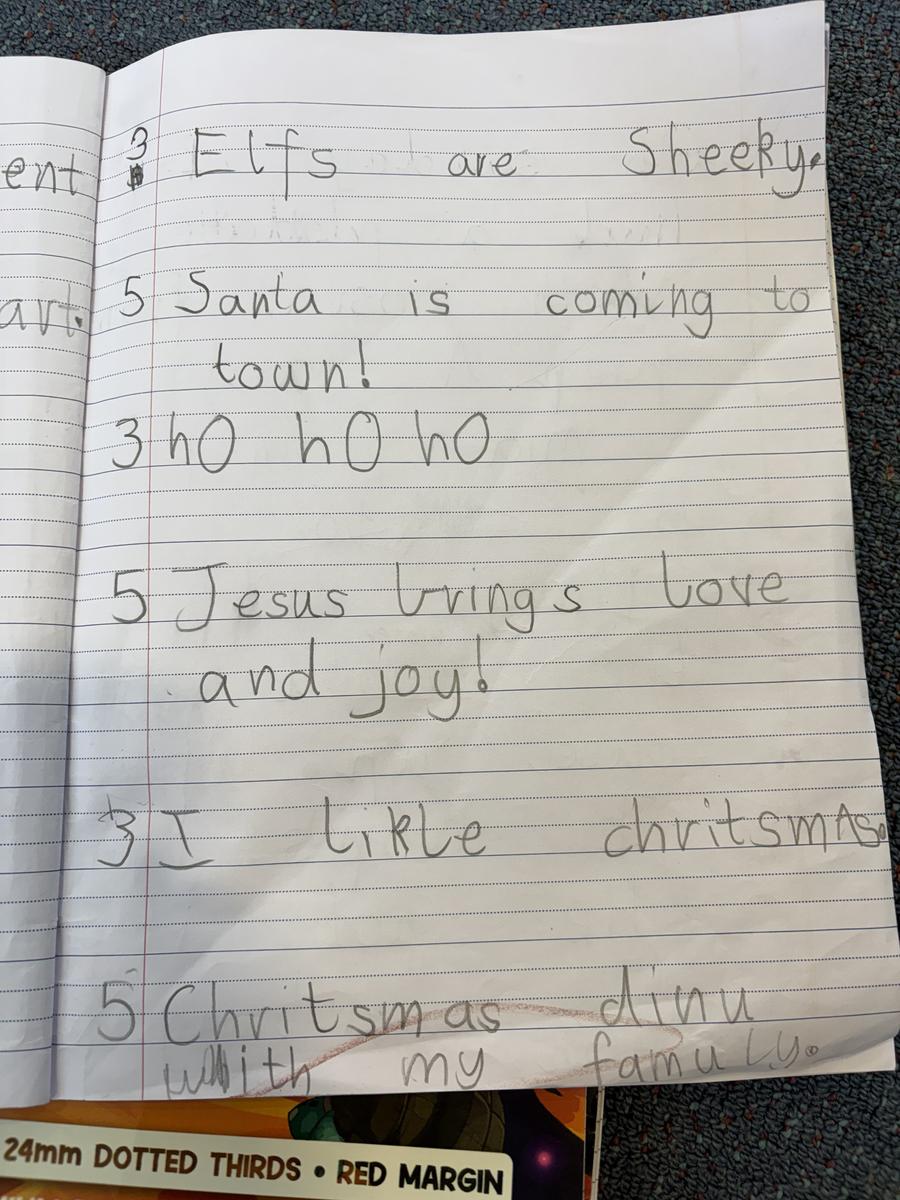 ent
art.
3 Elfs are Sheeky.
5 Santa is coming to
town!
3 hO hO hO
5 Jesus brings love
and joy!
3 I likle chritsmas.
5 Chritsmas dinu
whith my famuly.
24mm DOTTED THIRDS • RED MARGIN